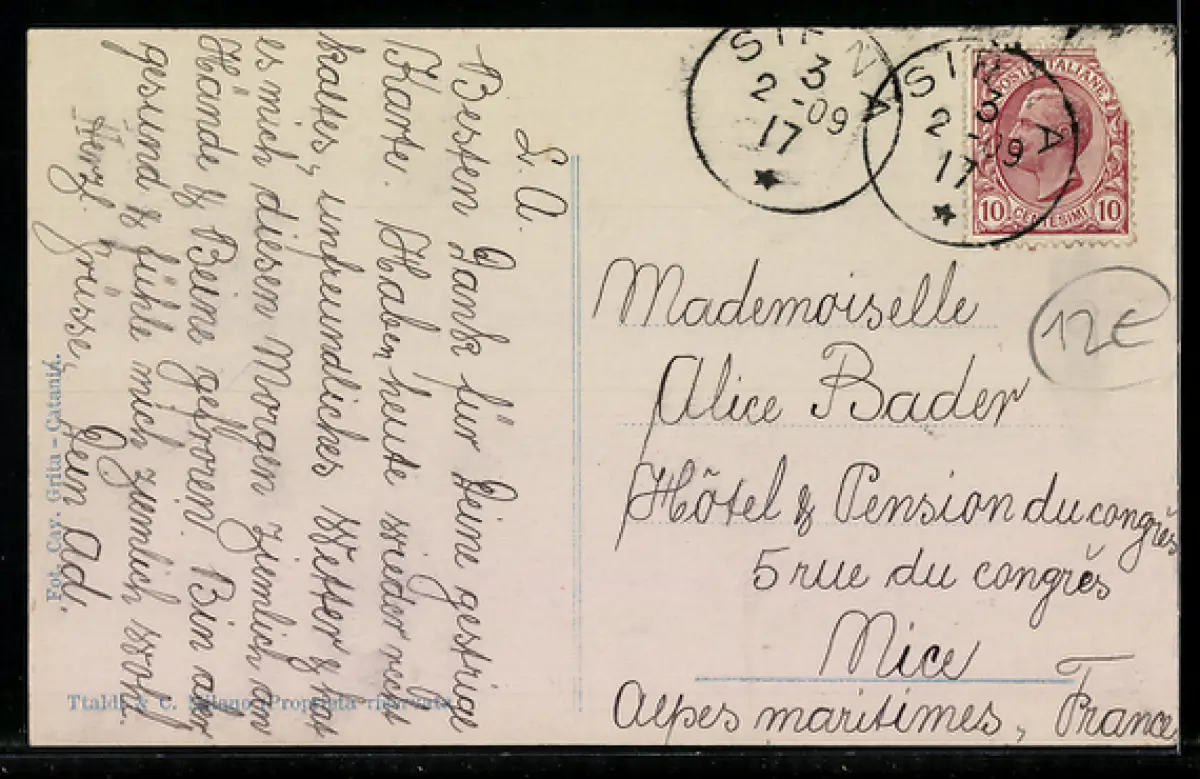 L. A.
Besten Dank für Deine gestrige
Karte. Haben heute wieder recht
kaltes, unfreundliches Wetter & hat
es mich diesen Morgen ziemlich an
Hände & Beine gefroren. Bin aber
gesund & fühle mich ziemlich wohl.
Herzl. Grüsse,
Dein Ad.
Fot. Cav. Grita - Catania.
& C. Milano (Proprietà riservata
SIENA
3
2 - 09
17
SIENA
3
2 - 09
17
POSTE ITALIANE
10 CENTESIMI 10
12€
Mademoiselle
Alice Bader
Hôtel & Pension du congrès
5 rue du congrès
Nice
Alpes maritimes, France